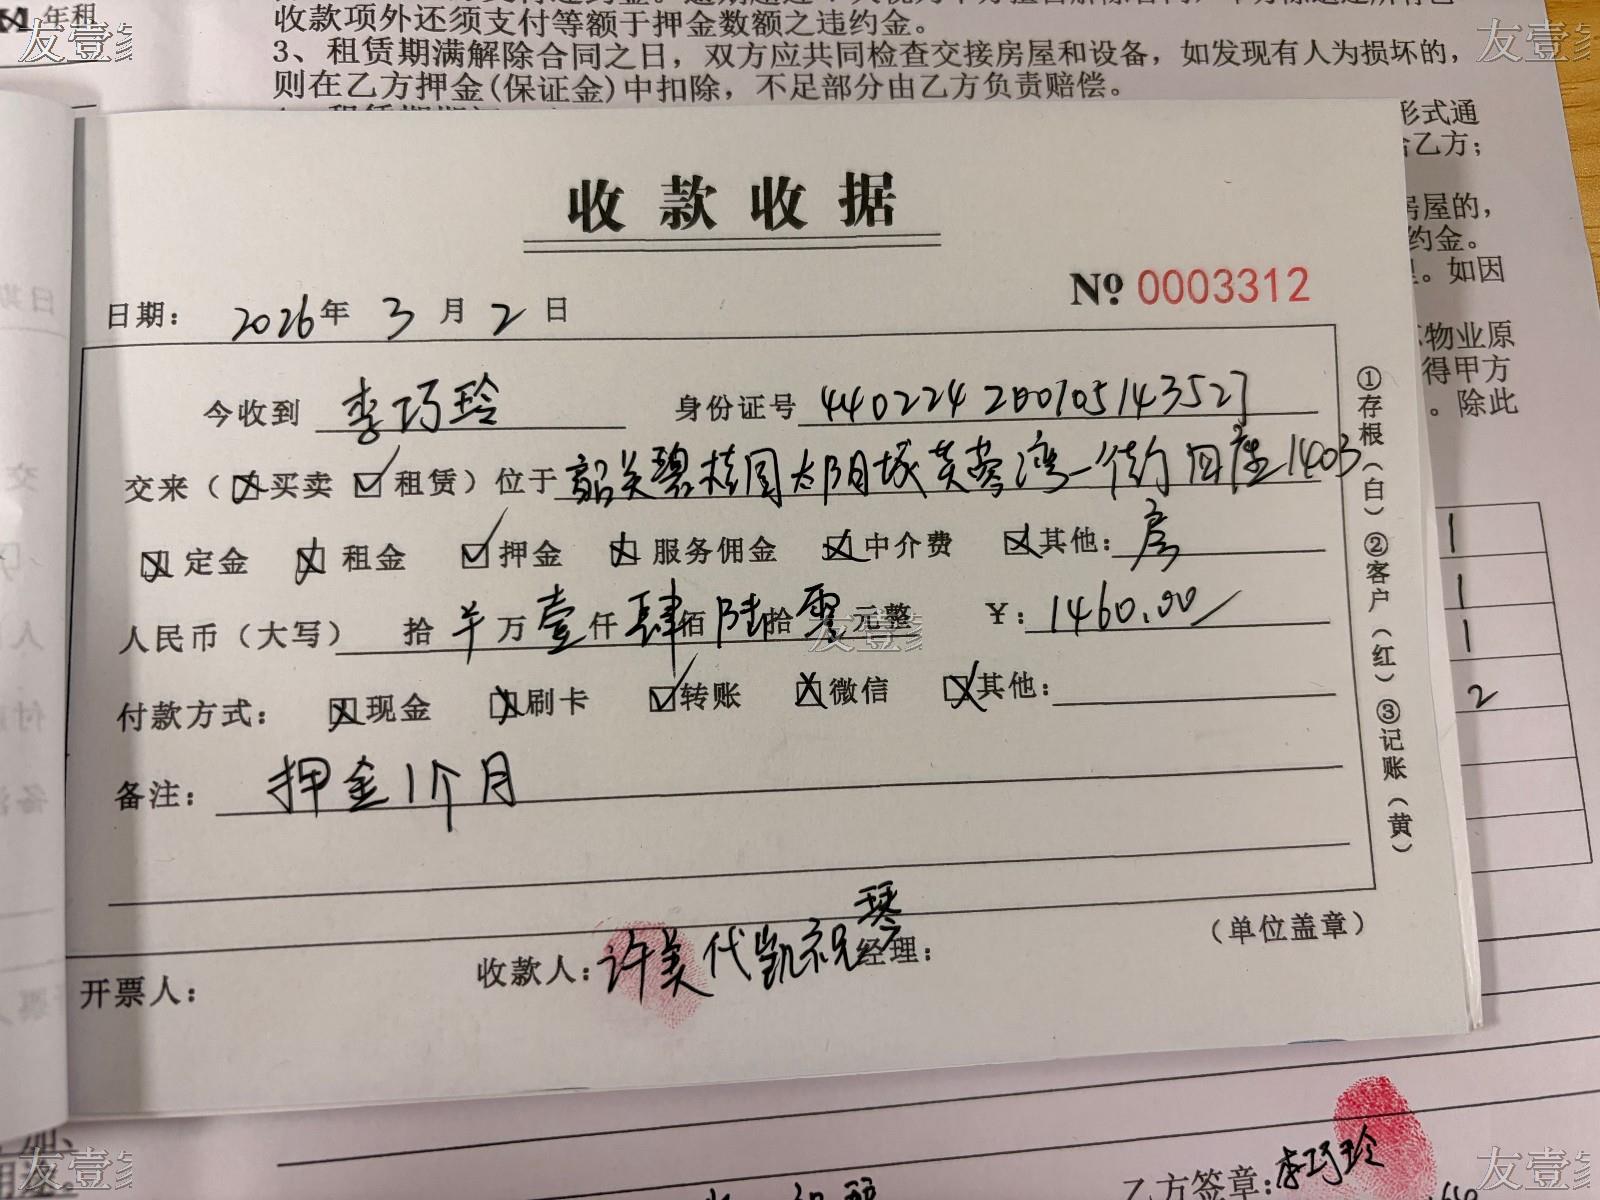 年租
收款项外还须支付等额于押金数额之违约金。
3、租赁期满解除合同之日，双方应共同检查交接房屋和设备，如发现有人为损坏的，
则在乙方押金(保证金)中扣除，不足部分由乙方负责赔偿。
形式通
乙方；
房屋的，
约金。
。如因
物业原
得甲方
。除此
收款收据
№ 0003312
日期： 2026年 3 月 2 日
今收到 李巧玲 身份证号 440224200105143527
交来（☒买卖 ☑租赁）位于 韶关碧桂园太阳城芙蓉湾一街四座1403
☒定金 ☒租金 ☑押金 ☒服务佣金 ☒中介费 ☒其他： 房
人民币（大写） 拾 万 壹 仟 肆 佰 陆 拾 零 元整 ¥： 1460.00
付款方式： ☒现金 ☒刷卡 ☑转账 ☒微信 ☒其他：
备注： 押金1个月
①存根（白）②客户（红）③记账（黄）
（单位盖章）
开票人： 收款人： 许美代凯祝琴 经理：
1
1
1
2
乙方签章： 李巧玲
友壹家
友壹家
友壹家
友壹家
友壹家